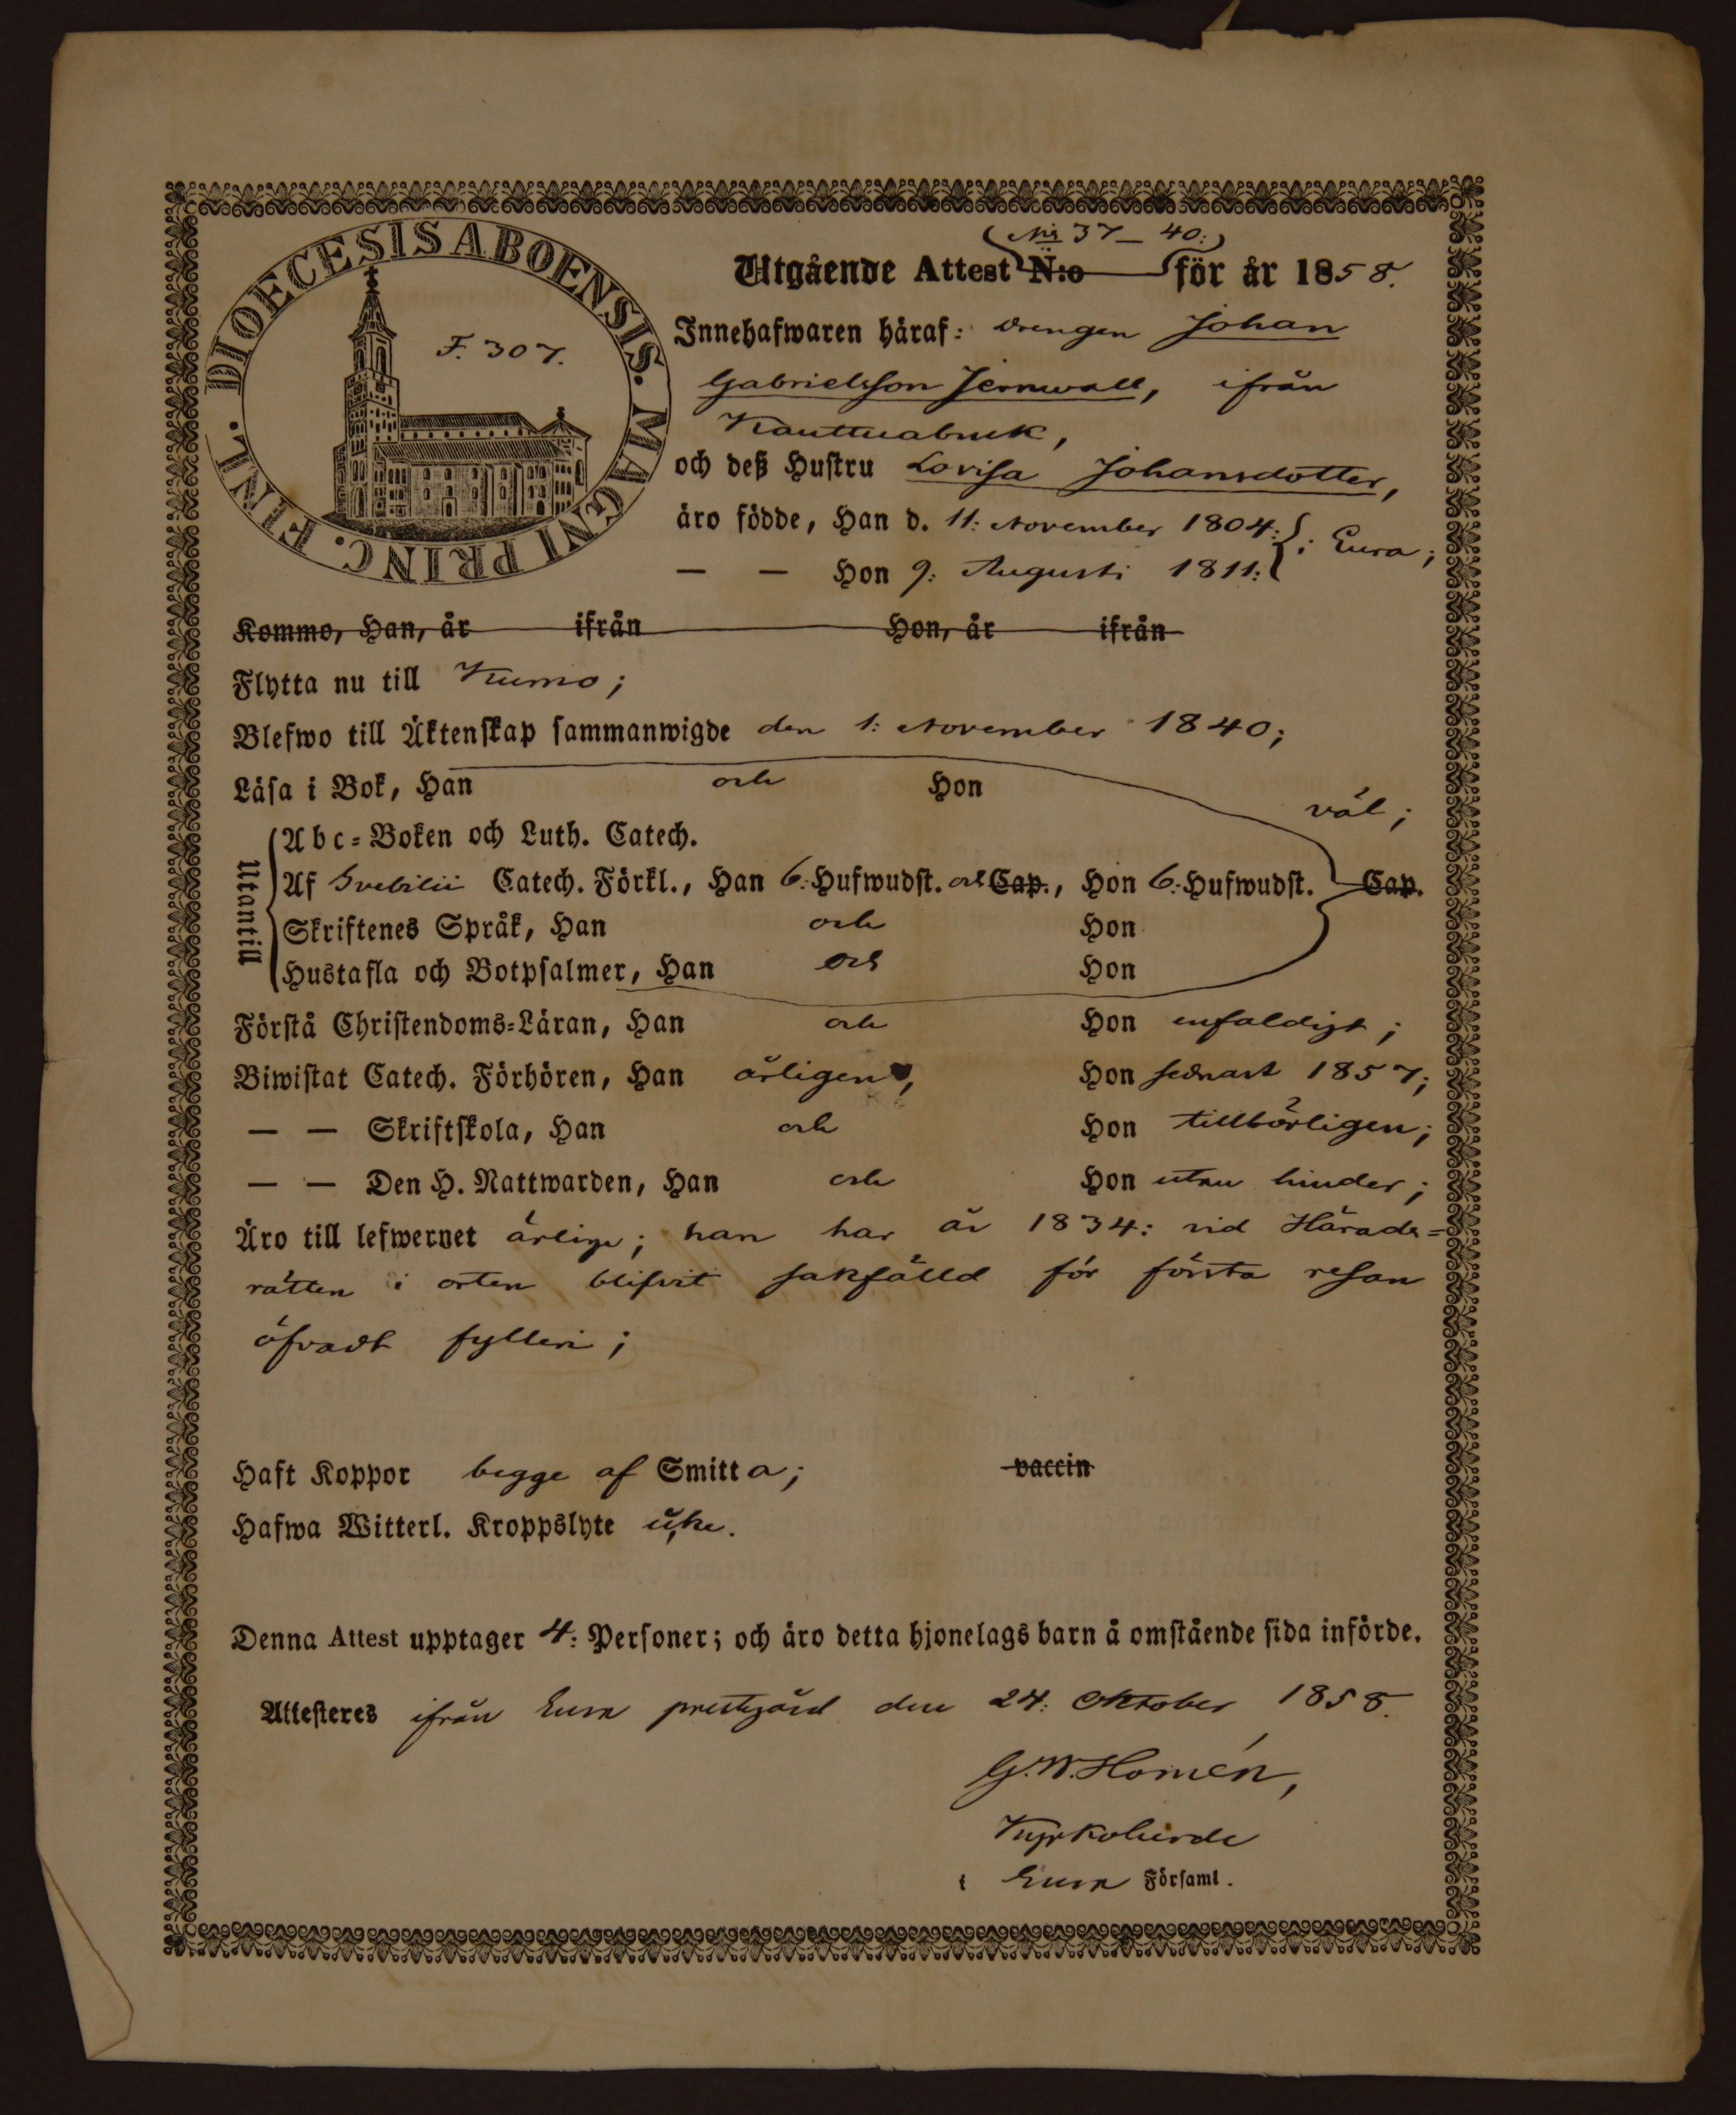 DIOECESIS ABOENSIS. MAGNI PRINC. FINL.
F. 307.
N:is 37 – 40:
Utgående Attest N:o för år 1858.
Innehafwaren häraf: drengen Johan
Gabrielsson Jernwall, ifrån
Kauttuabruk,
och deß Hustru Lovisa Johansdotter,
äro födde, Han d. 11: November 1804: i Eura;
— — Hon 9: Augusti 1811:
Kommo, Han, år ifrån Hon, år ifrån
Flytta nu till Kumo;
Blefwo till Äktenskap sammanwigde den 1: November 1840;
Läsa i Bok, Han och Hon väl;
Utantill
Abc-Boken och Luth. Catech.
Af Svebilii Catech. Förkl., Han 6: Hufwudst. och Cap., Hon 6: Hufwudst. Cap.
Skriftenes Språk, Han och Hon
Hustafla och Botpsalmer, Han och Hon
Förstå Christendoms-Läran, Han och Hon enfaldigt;
Biwistat Catech. Förhören, Han årligen, Hon sednast 1857;
— — Skriftskola, Han och Hon tillbörligen;
— — Den H. Nattwarden, Han och Hon utan hinder;
Äro till lefwernet ärlige; han har år 1834: vid Härads-
rätten i orten blifvit sakfälld för första resan
öfvadt fylleri;
Haft Koppor begge af Smitta; vaccin
Hafwa Witterl. Kroppslyte icke.
Denna Attest upptager 4: Personer; och äro detta hjonelags barn å omstående sida införde.
Attesteres ifrån Eura prestgård den 24: Oktober 1858.
G. W. Homén,
Kyrkoherde
i Eura Församl.